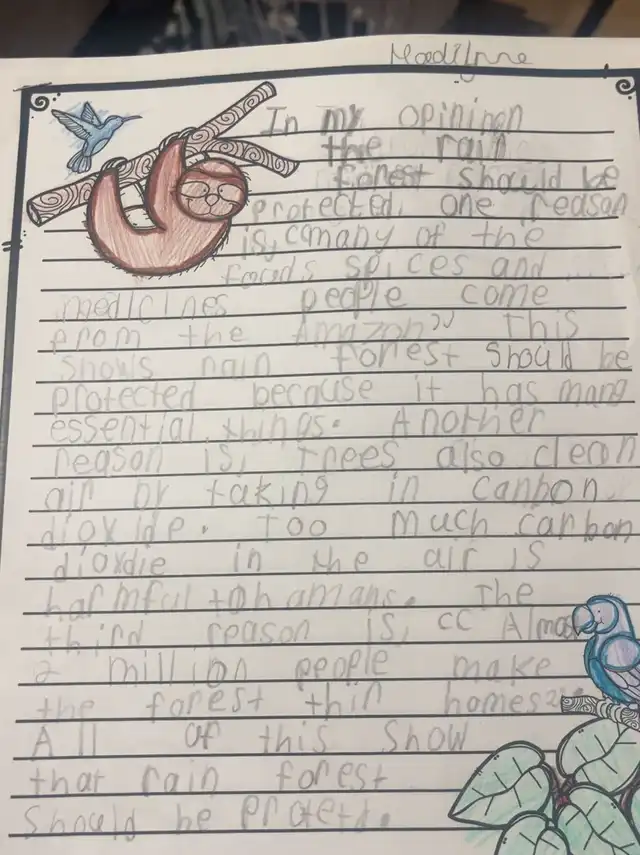 Madilynne
In my opininon
the rain
forest should be
protected. one reason
is, "many of the
foods spices and
medicines people come
from the Amazon" This
shows rain forest should be
protected because it has many
essential things. Another
reason is, Trees also clean
air by taking in canbon
dioxide. Too much carbon
dioxdie in the air is
harmful to hamans. The
third reason is, "Almost
2 million people make
the forest thin homes"
All of this Show
that rain forest
Should be protetd.